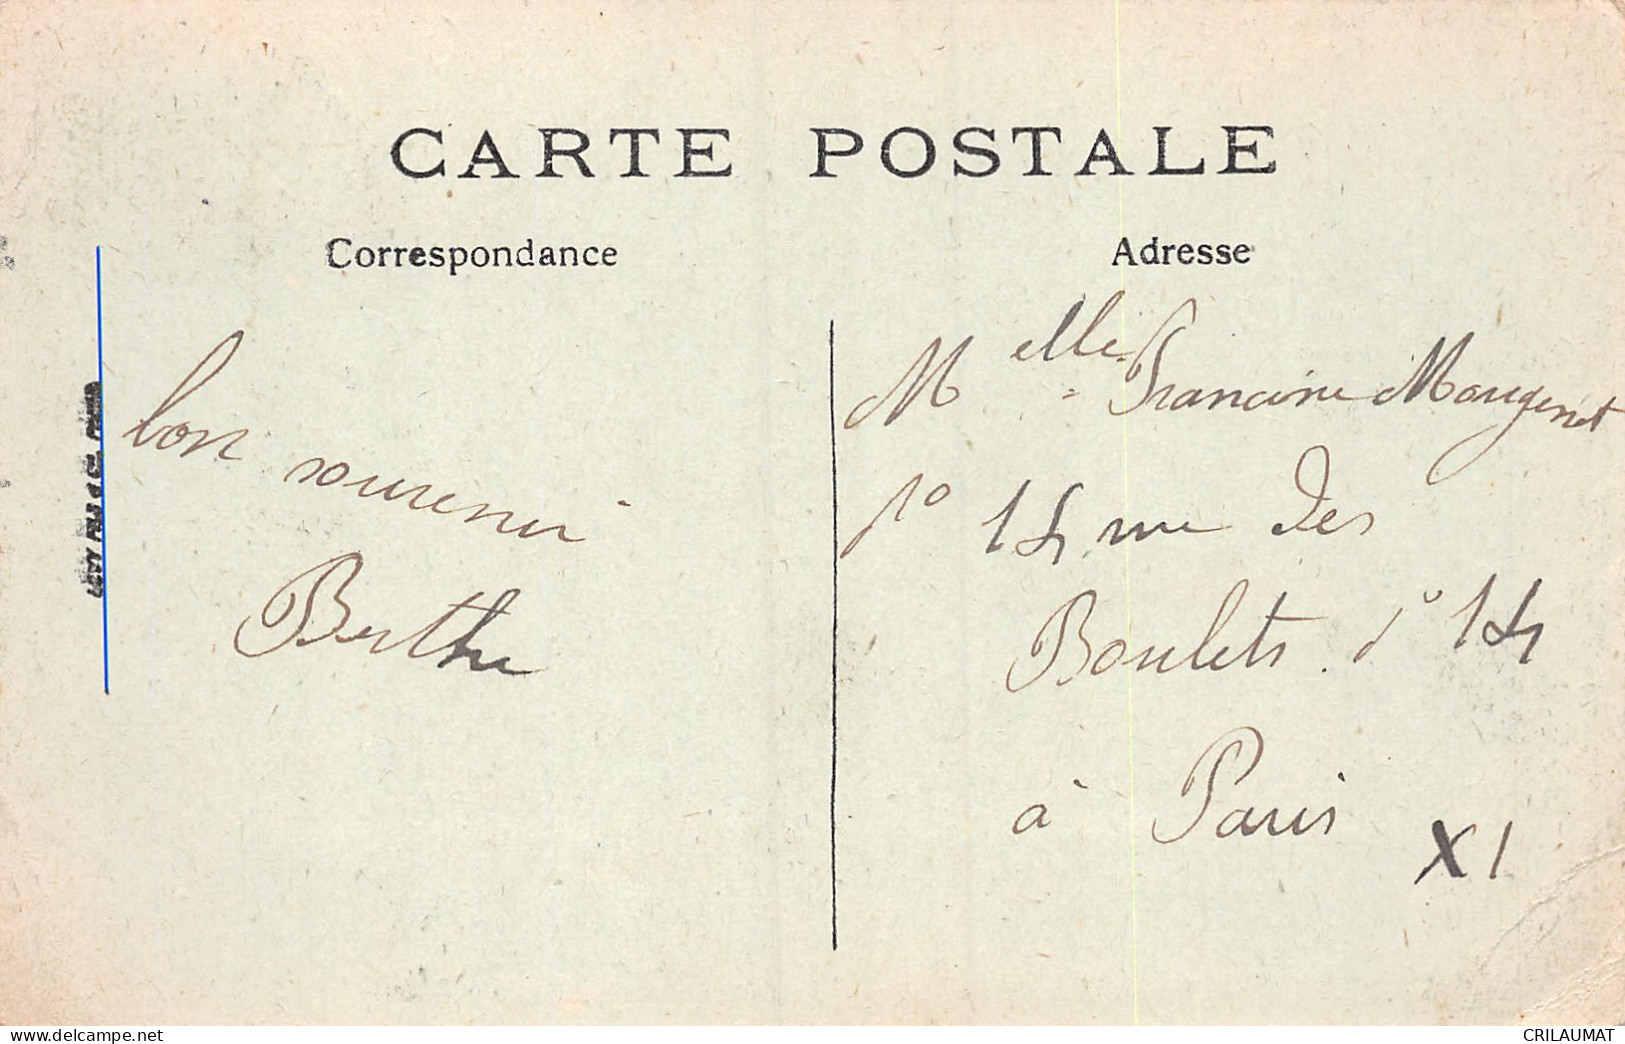 CARTE POSTALE
Correspondance
Adresse
LEVY FILS & Cie, PARIS
bon souvenir
Berthe
Melle Francine Mougenot
no 14 rue des
Boulets no 14
à Paris XI
www.delcampe.net
CRILAUMAT